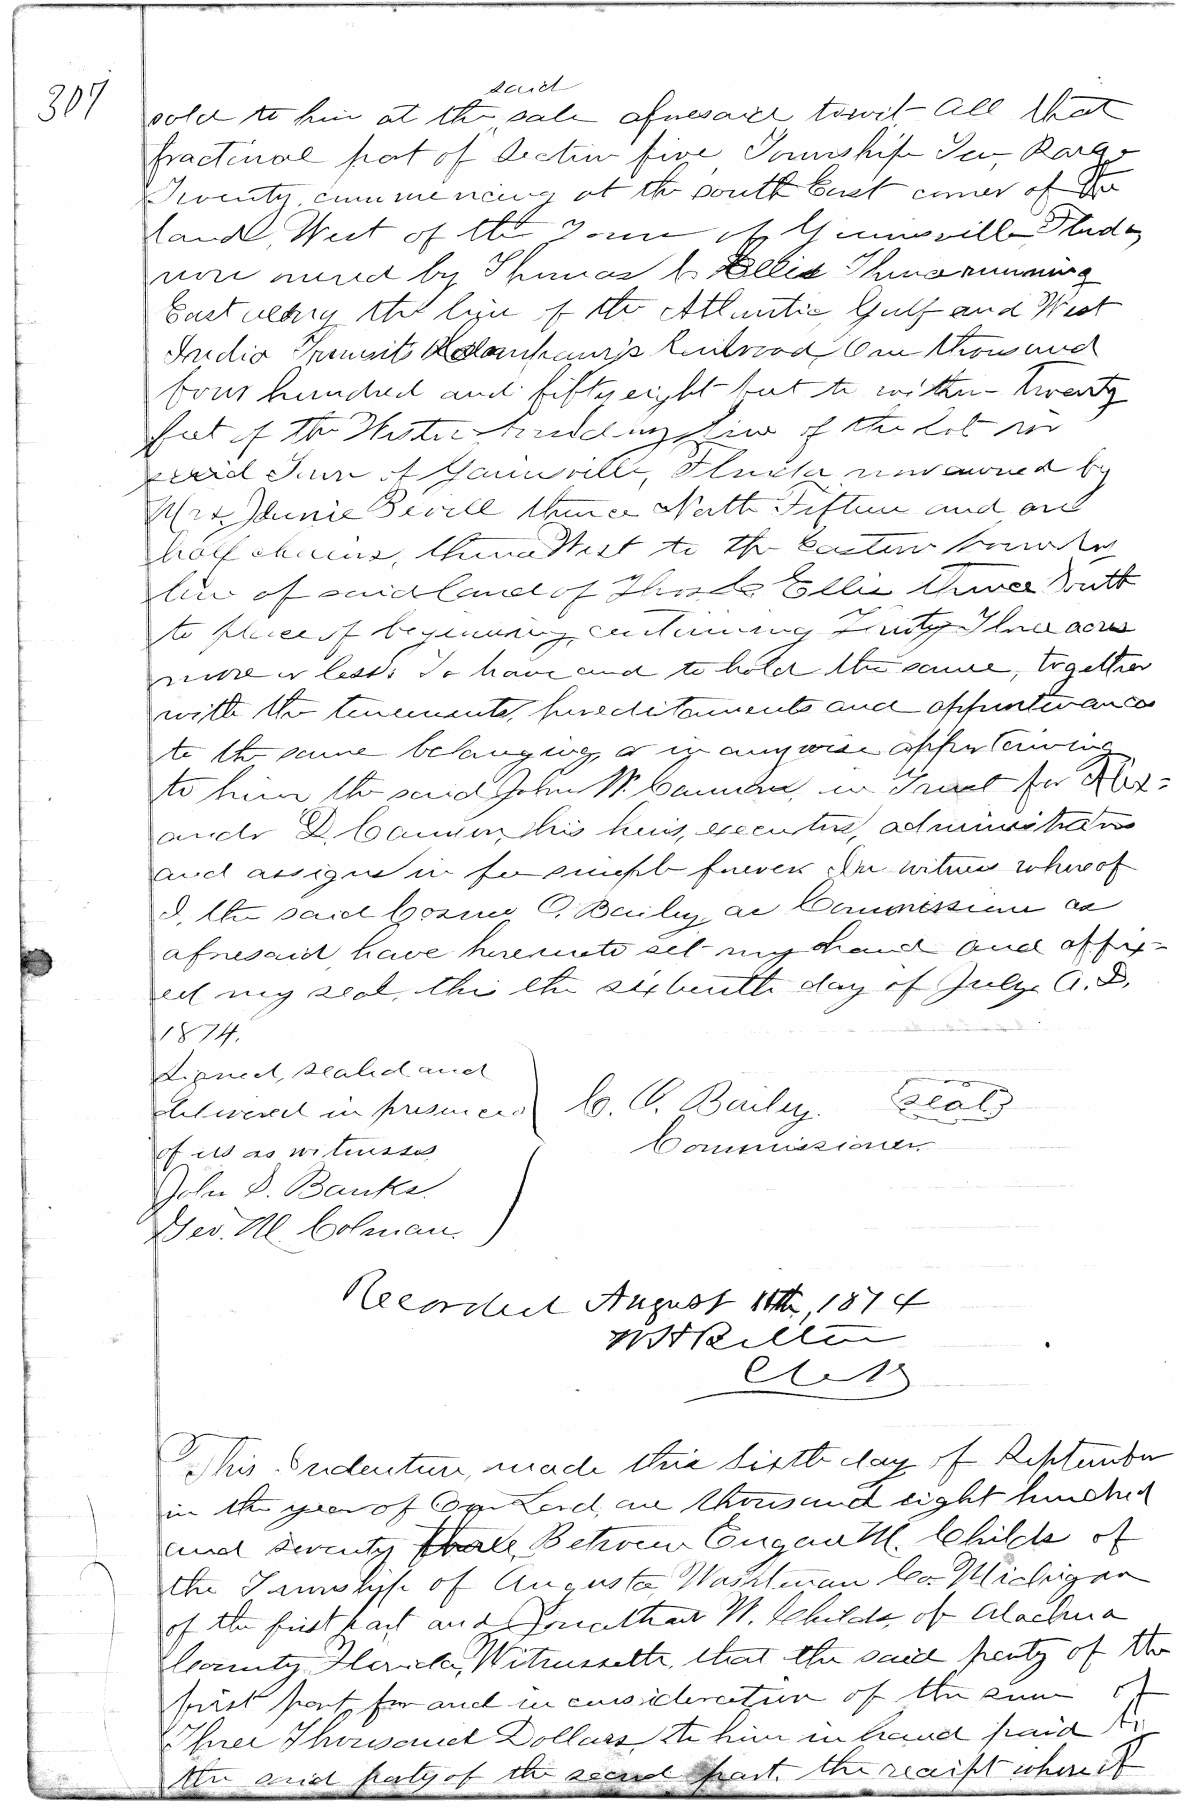 307
said
sold to him at the sale aforesaid towit All that
fractional part of Section five, Township Ten, Range
Twenty, commencing at the South East corner of the
land, West of the Town of Gainesville Florida,
now owned by Thomas C. Ellis Thence running
East along the line of the Atlantic, Gulf and West
India Transit Company's Railroad, One thousand
four hundred and fifty eight feet to within Twenty
feet of the Western bounding line of the Lot in
said Town of Gainesville, Florida now owned by
Mrs. Jennie Bevill thence North Fifteen and one
half chains, thence West to the Eastern boundary
line of said land of Thos. C. Ellis thence South
to place of beginning, containing Thirty Three acres
more or less. To have and to hold the same, together
with the tenements, hereditaments and appurtenances
to the same belonging, or in anywise appertaining
to him the said John W. Cannon, in Trust for Alex=
ander D. Cannon, his heirs, executors, administrators
and assigns in fee simple forever. In witness whereof
I, the said Cosmo O. Bailey, as Commissioner as
aforesaid, have hereunto set my hand and affix=
ed my seal, this the sixteenth day of July A.D.
1874.
Signed, sealed and
delivered in presence
of us as witnesses
John D. Banks.
Geo. M. Colman.
C. O. Bailey. Seal
Commissioner.
Recorded August 11th, 1874
Clerk
This Indenture, made this Sixth day of September
in the year of Our Lord, one thousand eight hundred
and seventy three, Between Eugene M. Childs of
the Township of Augusta, Washtenaw Co. Michigan
of the first part and Jonathan W. Childs, of Alachua
County Florida, Witnesseth, that the said party of the
first part for and in consideration of the sum of
Three Thousand Dollars, to him in hand paid by
the said party of the second part, the receipt whereof